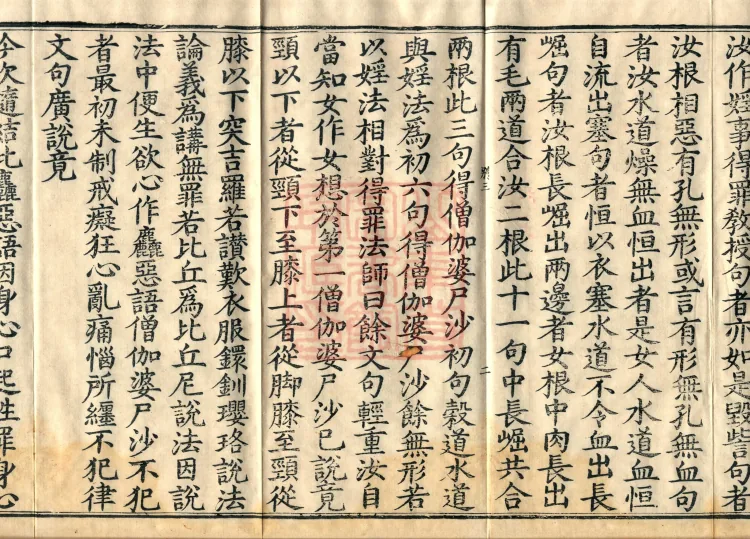 汝作婬事得罪教授句者亦如是毀呰句者
汝根相惡有孔無形或言有形無孔無血句
者汝水道燥無血恒出者是女人水道血恒
自流出塞句者恒以衣塞水道不令血出長
崛句者汝根長崛出兩邊者女根中肉長出
有毛兩道合汝二根此十一句中長崛共合
兩根此三句得僧伽婆尸沙初句穀道水道
與婬法爲初六句得僧伽婆尸沙餘無形若
以婬法相對得罪法師曰餘文句輕重汝自
當知女作女想於第一僧伽婆尸沙已說竟
頸以下者從頸下至膝上者從脚膝至頸從
膝以下突吉羅若讃歎衣服鐶釧瓔珞說法
論義爲講無罪若比丘爲比丘尼說法因說
法中便生欲心作麤惡語僧伽婆尸沙不犯
者最初未制戒癡狂心亂痛惱所纏不犯律
文句廣說竟
今次隨結此麤惡語因身心口起性罪身心